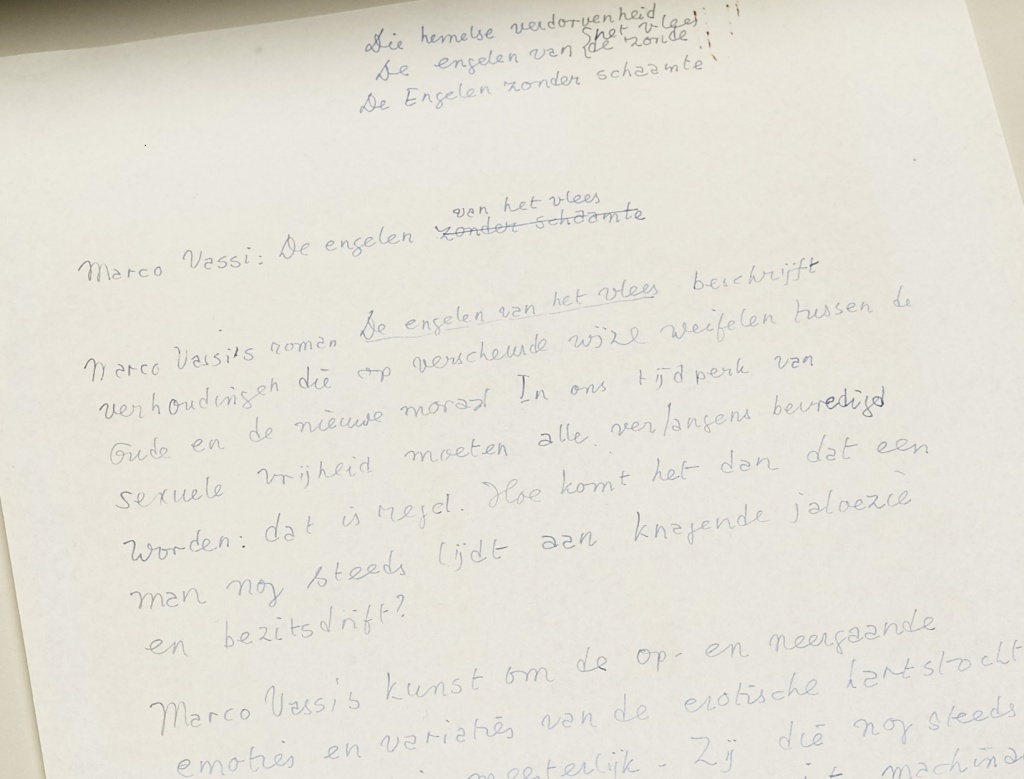 Die hemelse verdorvenheid
het vlees
De engelen van de zonde
De Engelen zonder schaamte
van het vlees
Marco Vassi: De engelen zonder schaamte
Marco Vassi's roman De engelen van het vlees beschrijft
verhoudingen die op verscheurde wijze weifelen tussen de
Oude en de nieuwe moraal In ons tijdperk van
sexuele vrijheid moeten alle verlangens bevredigd
worden: dat is regel. Hoe komt het dan dat een
man nog steeds lijdt aan knagende jaloezie
en bezitsdrift?
Marco Vassi's kunst om de op- en neergaande
emoties en variaties van de erotische hartstocht
meesterlijk. Zij die nog steeds